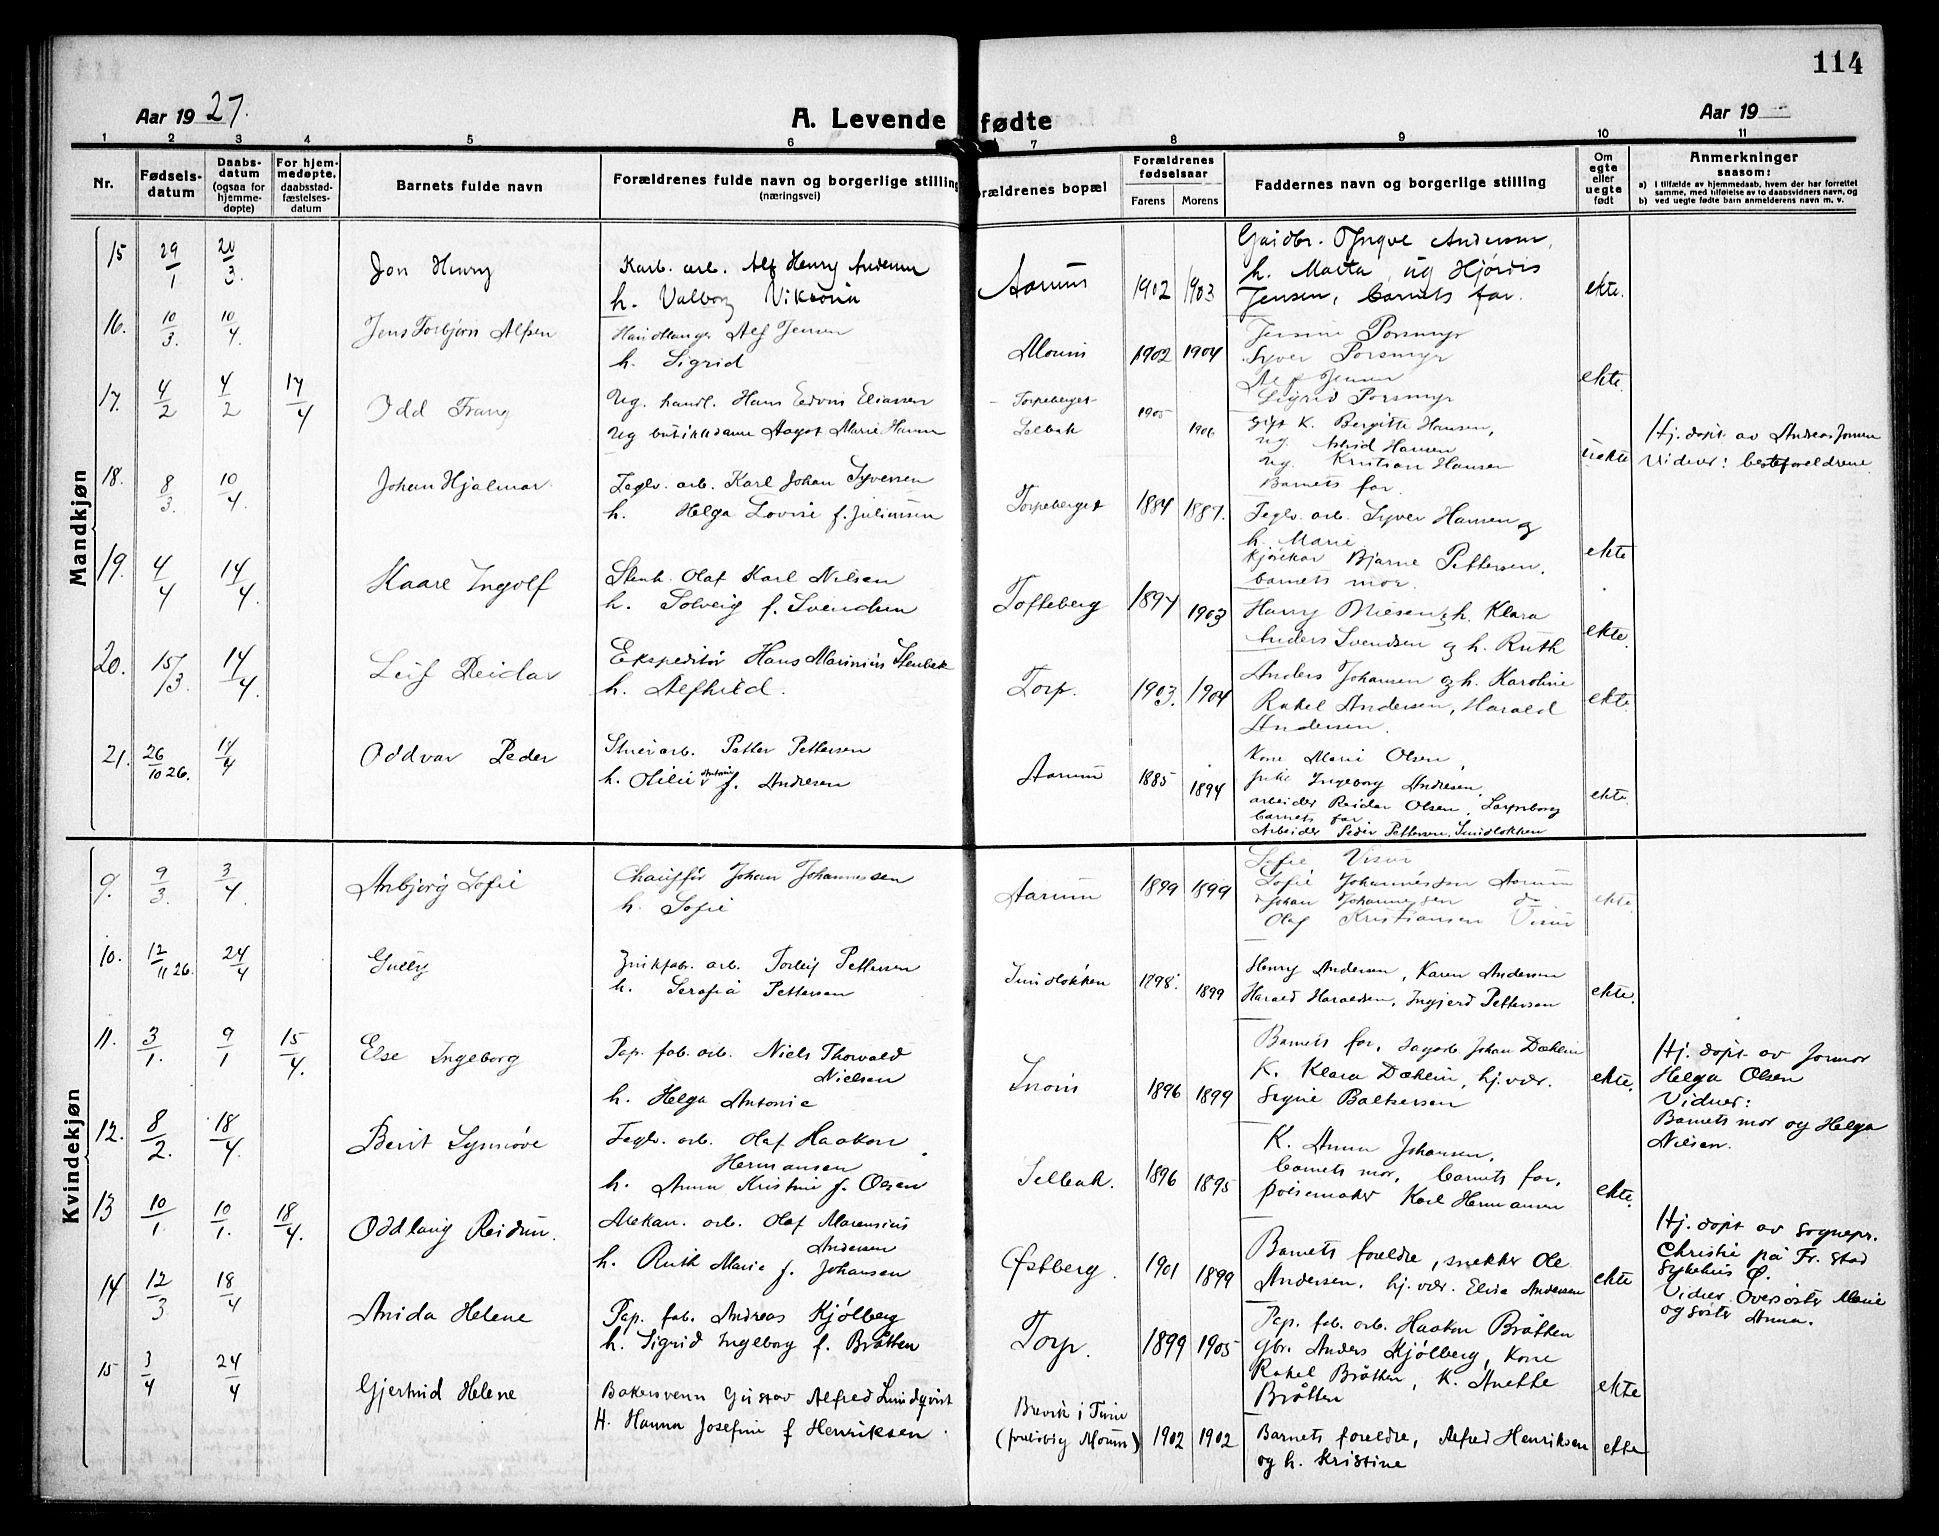 114
Aar 1927.
A. Levende fødte
Aar 19
1 2 3 4 5 6 7 8 9 10 11
Nr.
Fødsels-datum
Daabs-datum (ogsaa for hjemme-døpte)
For hjem-medøpte, daabsstad-fæstelses-datum
Barnets fulde navn
Forældrenes fulde navn og borgerlige stilling (næringsvei)
orældrenes bopæl
Forældrenes fødselsaar
Farens Morens
Faddernes navn og borgerlige stilling
Om egte eller uegte født
Anmerkninger saasom:
a) I tilfælde av hjemmedaab, hvem der har forrettet samme, med tilføielse av to daabsvidners navn, og
b) ved uegte fødte barn anmelderens navn m. v.
Mandkjøn
15 29/1 20/3. Jon Henry
Karb. arb. Alf Henry Andersen
h. Valborg Viktoria
Aarum 1902 1903
Yngve Andersen,
h. Marta, og Hjørdis
Jensen, barnets far.
ekte.
16. 10/3. 10/4. Jens Torbjørn Alfsen
Alf Jensen
h. Sigrid
Moum 1902 1904
Porsmyr
Syver Porsmyr
Alf Jensen
Sigrid Porsmyr
ekte.
17. 4/2 4/2 17/4 Odd Frang
Ug. handl. Hans Edvin Eliassen
Ug butikkdame Aagot Marie Hansen
Torpeberget
Selbak
1905 1906
Gift K. Birgitte Hansen,
ug. Astrid Hansen
ug. Kristian Hansen
Barnets far.
uekte
Hj. døpt av Andreas Jensen
Vidner: besteforeldrene
18. 8/3. 10/4. Johan Hjalmar
Teglv. arb. Karl Johan Syversen
h. Helga Lovise f. Juliussen
Torpeberget 1884 1887.
Teglv. arb. Syver Hansen og
h. Marie
Kjørekar Bjarne Pettersen.
barnets mor.
ekte
19. 4/4 14/4. Kaare Ingolf
Stenh. Olaf Karl Nilsen
h. Solveig f. Svendsen
Tofteberg 1897 1903
Harry Nilsen, h. Klara
Anders Svendsen og h. Ruth
ekte.
20. 15/3. 14/4. Leif Reidar
Ekspeditør Hans Marinius Stenbek
h. Alfhild.
Torp. 1903. 1904
Anders Johansen og h. Karoline
Rakel Andersen, Harald
Andersen.
ekte.
21. 26/10 26. 17/4 Oddvar Peder
Petter Pettersen
h. Otilie Antonie f. Andresen
Aarum 1885 1894
Kone Marie Olsen,
frke Ingeborg Andresen
arbeider Reidar Olsen, Sarpsborg
barnets far
Arbeider Peder Pettersen, Smidløkken
ekte.
Kvindekjøn
9. 9/3. 3/4. Anbjørg Sofie
Chauffør Johan Johannessen
h. Sofie
Aarum 1899 1899
Sofie Visur
Sofie Johannessen Aarum
Johan Johannessen do
Olaf Kristiansen Visur
ekte.
10. 12/11 26. 24/4 Gully
Zinkfab. arb. Torleif Pettersen
h. Serafia Pettersen
Smidløkken 1898. 1899
Henry Andersen, Karen Andersen
Harald Haraldsen, Ingjerd Pettersen
ekte.
11. 3/1. 9/1 15/4. Else Ingeborg
Pap. fab. arb. Niels Thorvald
Nielsen
h. Helga Antonie
1896 1899
Barnets far, sagarb. Johan Dæhlin
K. Klara Dæhlin, hj. vær.
Signe Baltzersen
ekte.
Hj. døpt av jormor
Helga Olsen
Vidner:
Barnets mor og Helga
Nilsen.
12. 8/2. 18/4. Berit Synnøve
Teglv. arb. Olaf Haakon
Hermansen
h. Anna Kristine f. Olsen
Selbak. 1896 1895
K. Anna Johansen,
barnets mor, barnets far,
pølsemaker Karl Hermansen
ekte.
13 10/1. 10/1. 18/4. Oddlaug Reidun.
Mekan. arb. Olaf Marensius
Andersen
h. Ruth Marie f. Johansen
Østberg. 1901 1899
Barnets foreldre, snekker Ole
Andersen, hj. vær. Elise Andersen
ekte
Hj. døpt av sognepr.
Christie på Fr.stad
sykehus Ø.
Vidner Oversøster Marie
og søster Anna.
14 12/3 18/4 Anida Helene
Pap. fab. Andreas Kjølberg
h. Sigrid Ingeborg f. Bråtten
Torp. 1899 1905
Pap. fab. arb. Haakon Bråtten
gbr. Anders Kjølberg, Kone
Rakel Bråtten, K. Anette
Bråtten
ekte
15 3/4 24/4 Gjertrud Helene
Bakersvenn Gustav Alfred Lundqvist
H. Hanna Josefine f Henriksen.
Brevik i Tune
(forelobig Moum)
1902 1902
Barnets foreldre, Alfred Henriksen
og h. Kristine
ekte